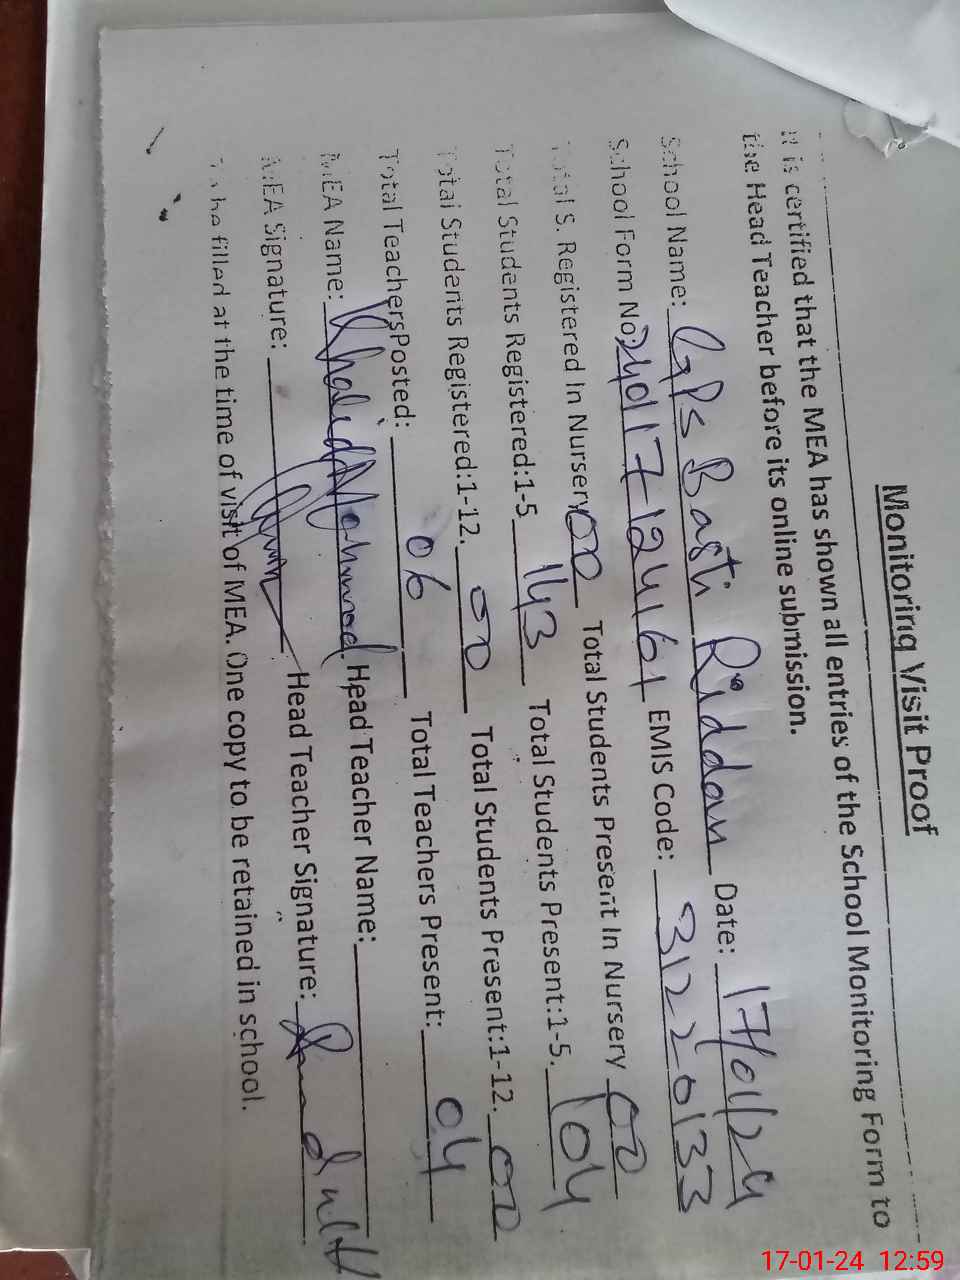 Monitoring Visit Proof
It is certified that the MEA has shown all entries of the School Monitoring Form to
the Head Teacher before its online submission.
School Name: GPS Basti Riddan Date: 17/01/24
School Form No: 24017-124161 EMIS Code: 31220133
Total S. Registered In Nursery 00 Total Students Present In Nursery 00
Total Students Registered:1-5 143 Total Students Present:1-5. 104
Total Students Registered:1-12. 00 Total Students Present:1-12. 00
Total Teachers Posted: 06 Total Teachers Present: 04
MEA Name: Khalid Mahmood Head Teacher Name:
MEA Signature: Head Teacher Signature:
To be filled at the time of visit of MEA. One copy to be retained in school.
17-01-24 12:59